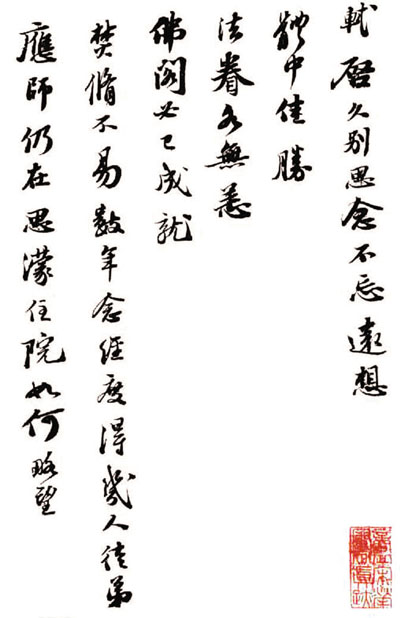 軾啓久別思念不忘遠想
體中佳勝
法眷各無恙
佛閣必已成就
焚脩不易數年念經度得幾人徒弟
應師仍在思濛住院如何略望